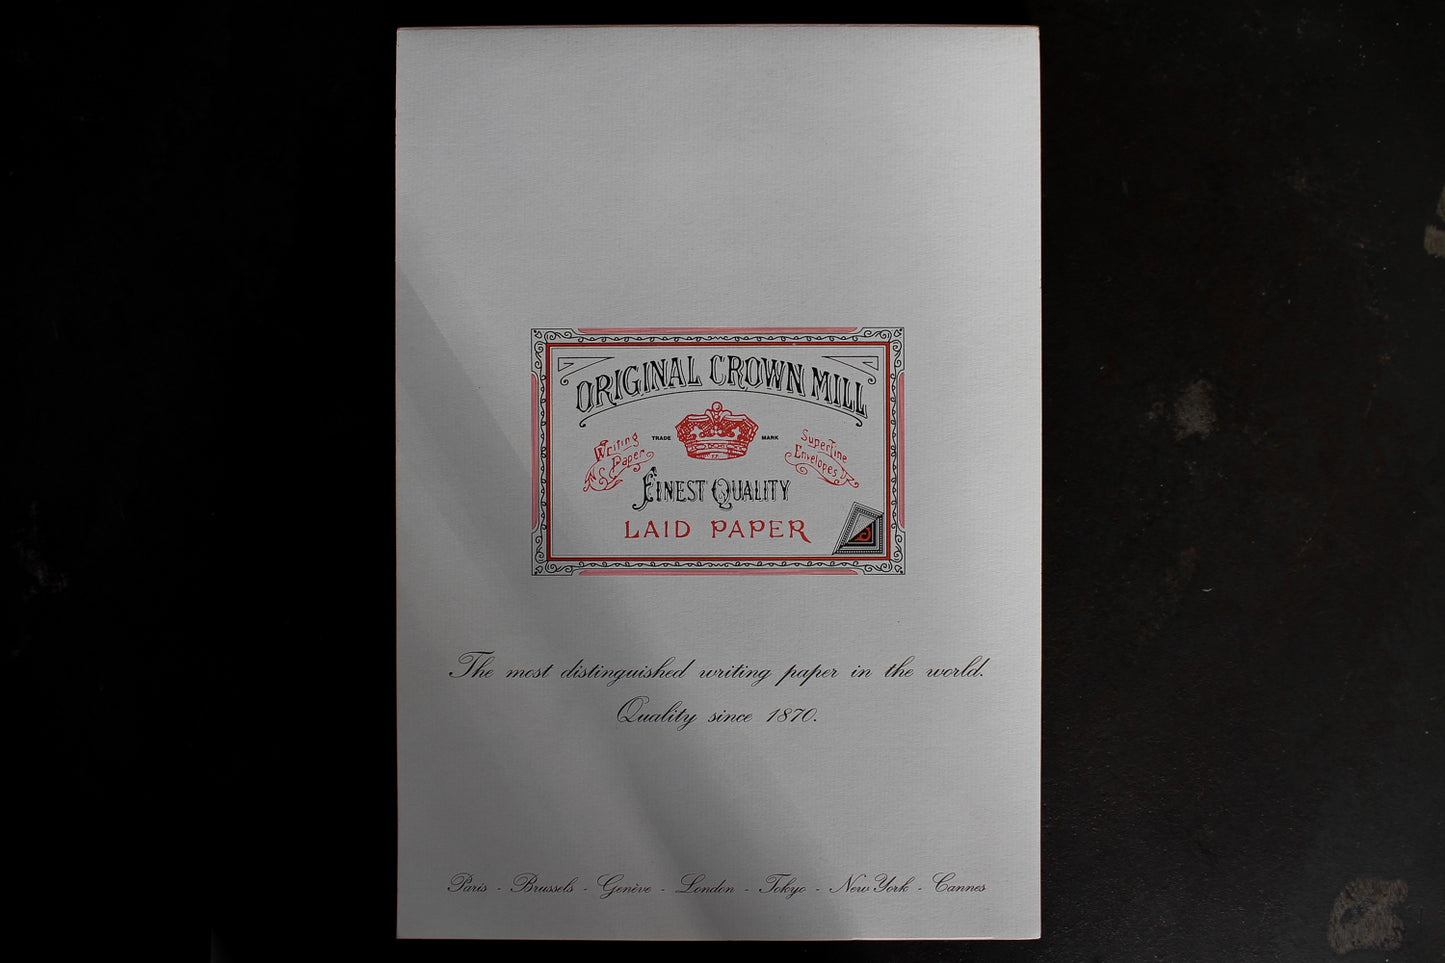 ORIGINAL CROWN MILL
TRADE MARK
Writing
Paper
Superfine
Envelopes
FINEST QUALITY
LAID PAPER
The most distinguished writing paper in the world.
Quality since 1870.
Paris - Brussels - Genève - London - Tokyo - New York - Cannes